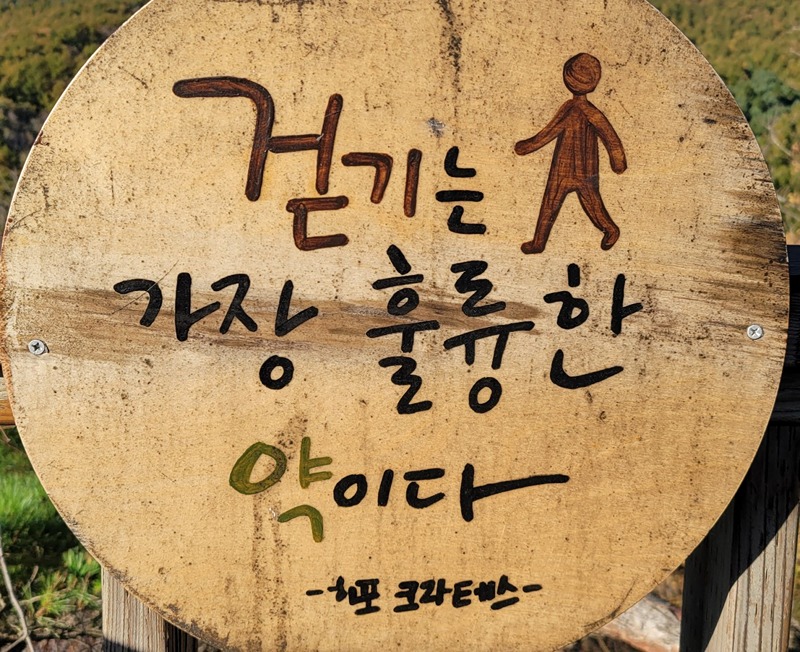 걷기는
가장 훌륭한
약이다
-히포 크라테스-